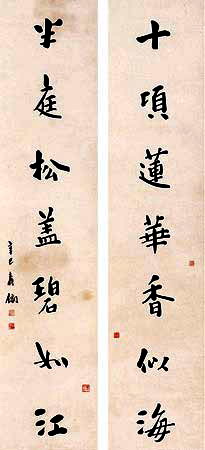 十項蓮華香似海
半庭松蓋碧如江
辛巳